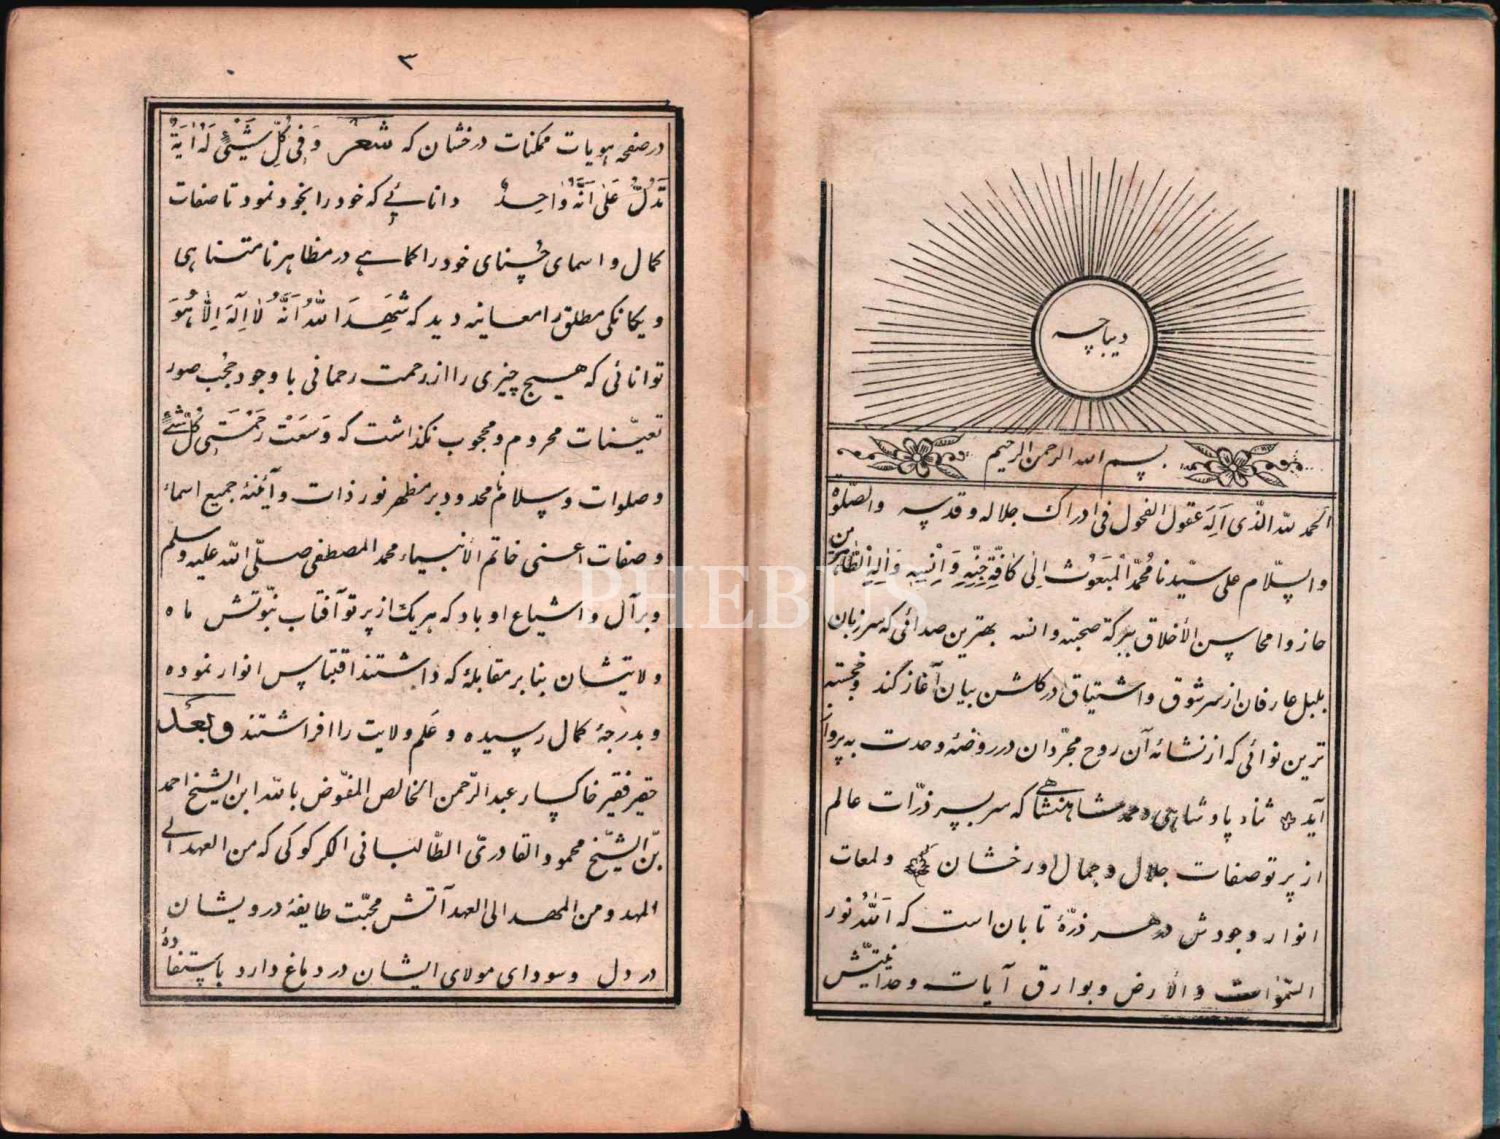 دیباچه
بسم الله الرحمن الرحیم
الحمد لله الذی اله عقول الفحول فی ادراک جلاله و قدسه والصلوة
والسلام علی سیدنا مُحمّد الْمَبعُوث اِلیٰ کٰافّةِ جِنِّهِ وَاِنْسِهِ وَاٰلِهِ الطّاهرین
حازوا محاسن الأخلاق ببرکة صحبته وانسه بهترین صدائی که سرزبان
بلبل عارفان از سر شوق و اشتیاق در کلشن بیان آغاز کند و خجسته
ترین نوائی که از نشانهٔ آن روح مجرّدان در روضهٔ وحدت به پرواز
آید ثناء پادشاهی و حمد شاهنشاهی که سر بسر ذرّات عالم
از پرتو صفات جلال و جمال او رخشان ولمعات
انوار وجودش در هر ذرّهٔ تابان است که اَللّٰهُ نور
السّمٰوات والأرض و بوارق آیات وحدانیّتش
۳
در صفحه هویات ممکنات درخشان که شعر وَفِی کُلِّ شَیْئٍ لَهُ اٰیَةٌ
تَدُلُّ عَلیٰ اَنَّهُ وٰاحِدٌ دانائے که خود را بخود نمود تا صفات
کمال و اسمای حُسنای خود را کماهے در مظاهر نامتناهی
و یکانکی مطلق را معاینه دید که شَهِدَ اللّٰهُ اَنَّهُ لٰا اِلٰهَ اِلّٰا هُوَ
توانائی که هیچ چیزی را از رحمت رحمانی با وجود حُجب صور
تعیّنات محروم و محجوب نکذاشت که وَسَعَتْ رَحْمَتِی کُلّ شَیْءٍ
و صلوات و سلام نامحدود بر مظهر نور ذات و آئنهٔ جمیع اسماء
و صفات اعنی خاتم الأنبیاء محمد المصطفی صلّی اللّه علیه وسلم
و برآل و اشیاع او باد که هریک از پرتو آفتاب نبّوتش ماه
ولایتشان بنابر مقابلهٔ که داشتند اقتباس انوار نموده
و بدرجهٔ کمال رسیده و عَلم ولایت را افراشتند وبعد
حقیر فقیر خاکسار عبد الرّحمن الخالص المفوّض باللّه ابن الشیخ احمد
بنّ الشیّخ محمود القادریّ الطّالبانی الکرکوکی که من العهد الی
المهد و من المهد الی العهد آتش محبّت طایفهٔ درویشان
در دل و سودای مولای ایشان در دماغ دارد باستفادهٔ
PHEBUS